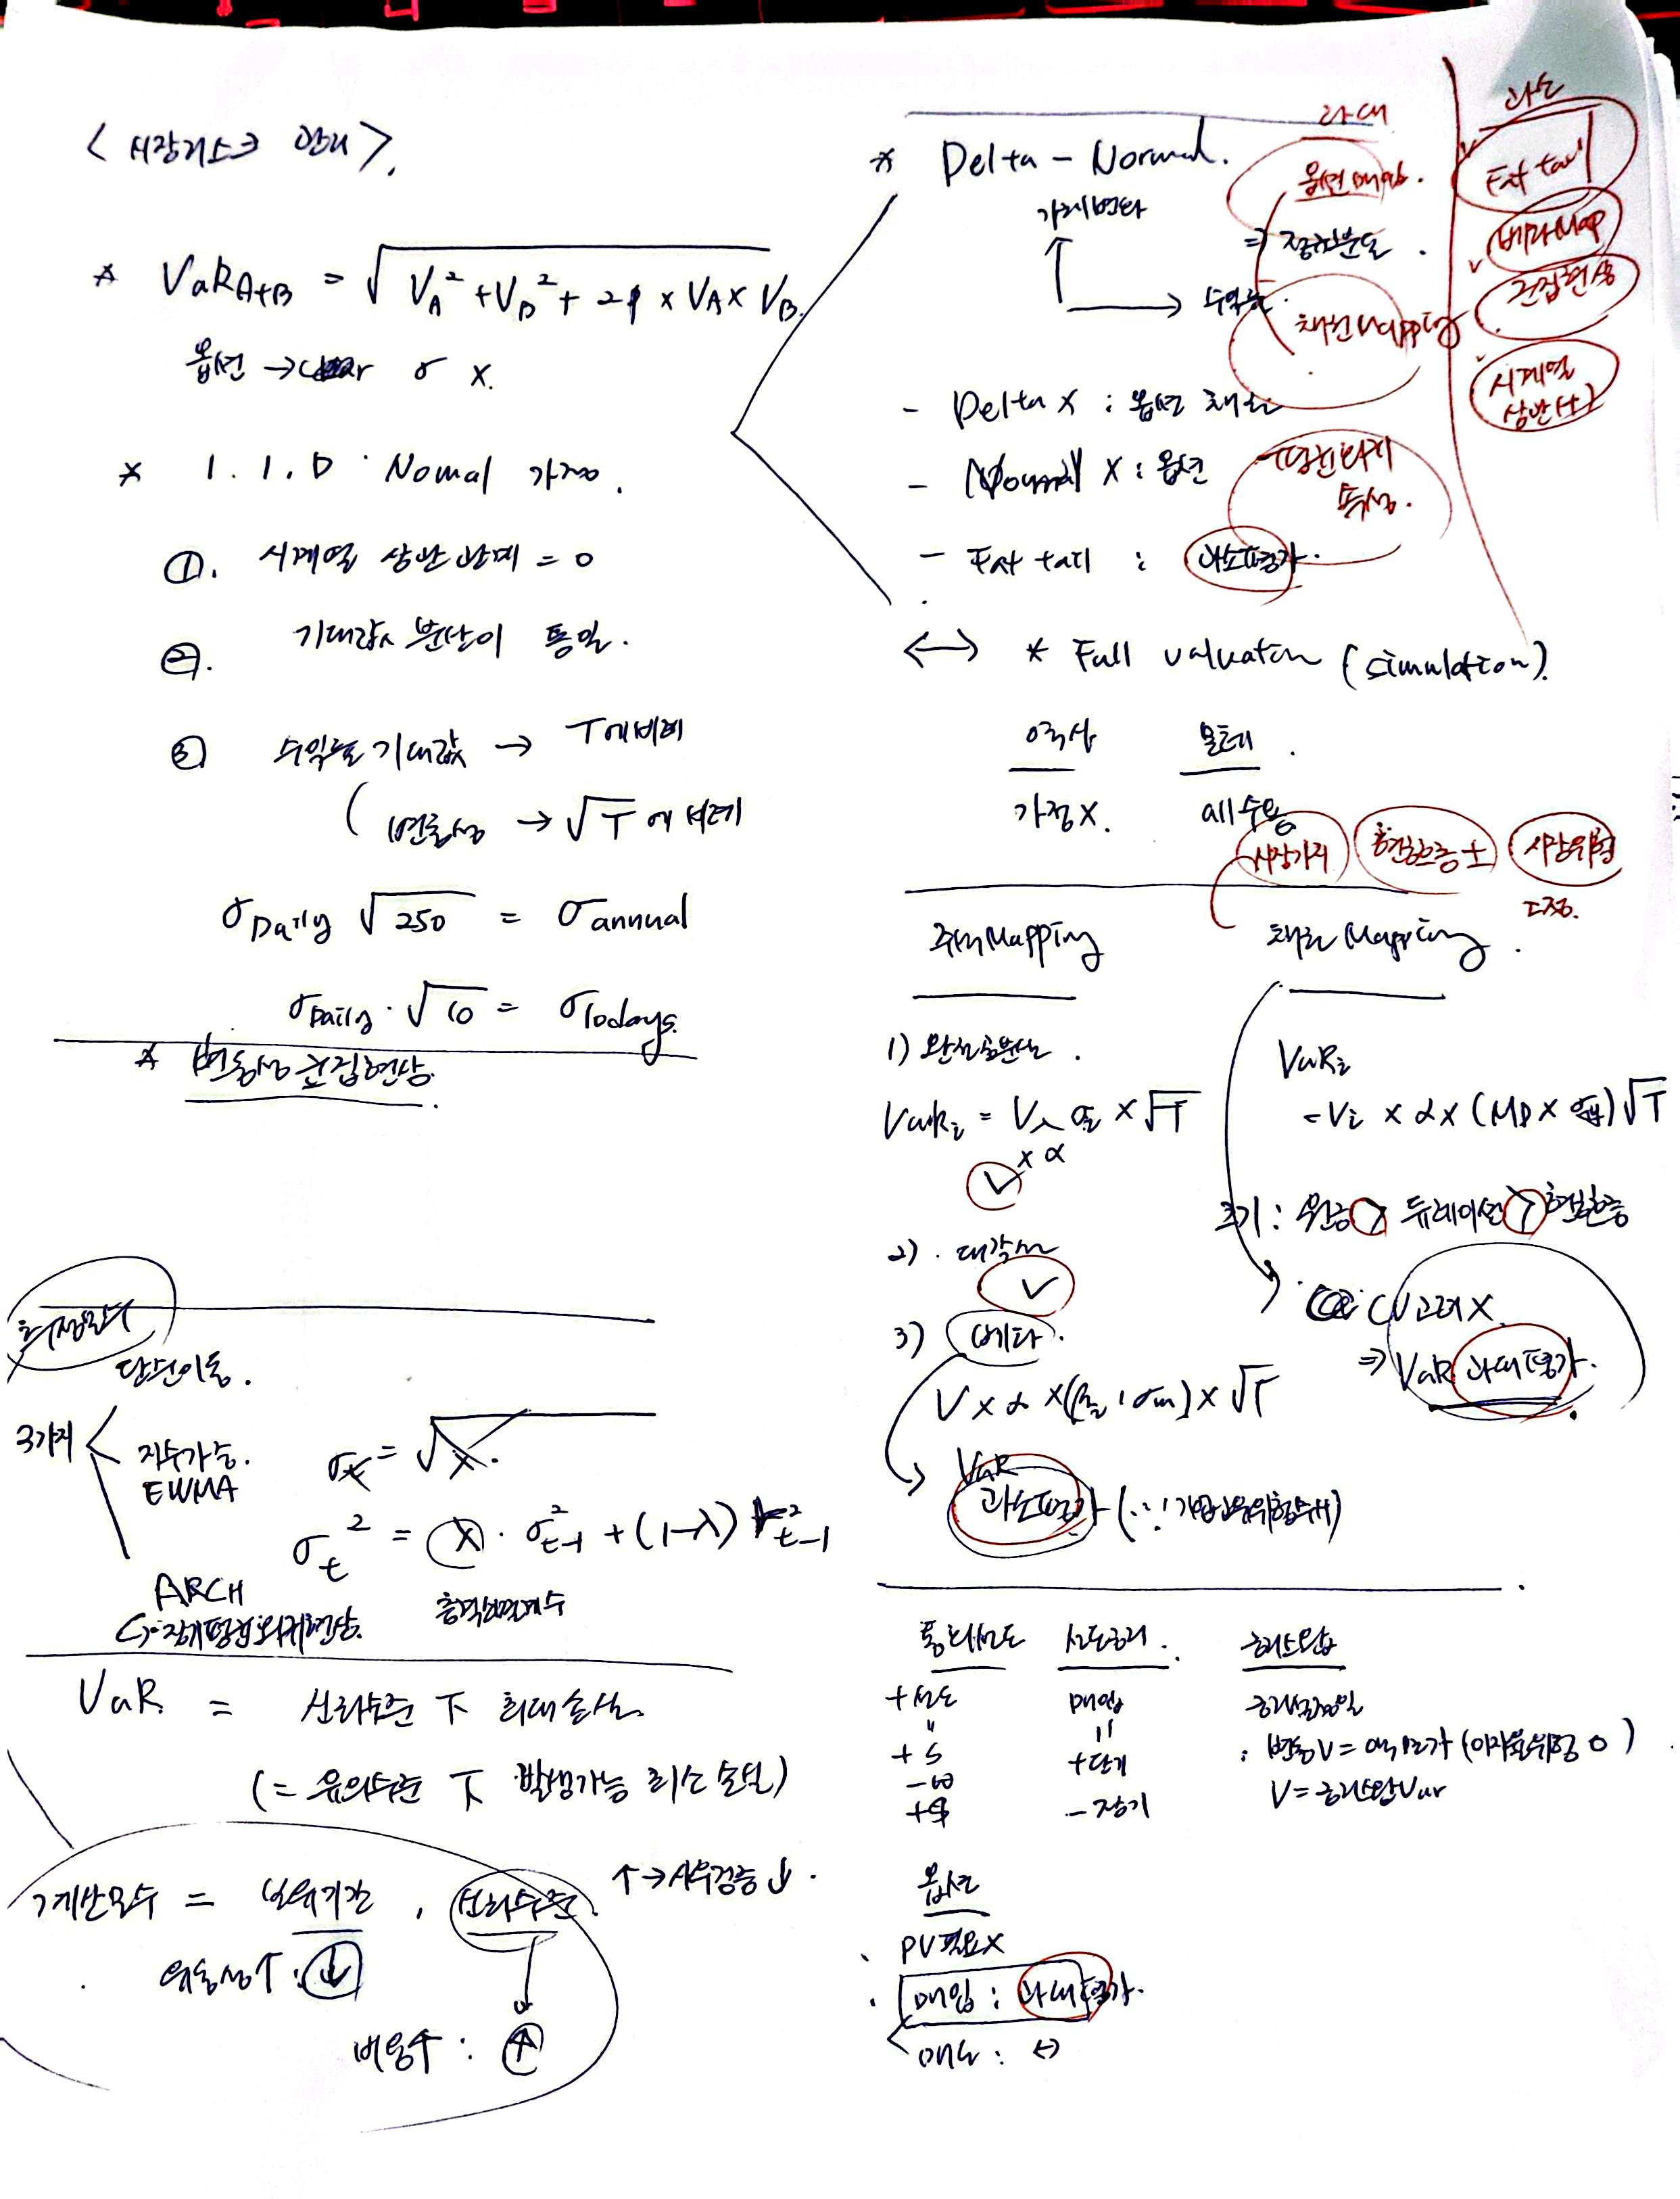 < 시장리스크 관리 >.
* VaR_A+B = √(V_A² + V_B² + 2ρ × V_A × V_B)
옵션 → σ x.
* 1.1.D Nomal 가정.
①. 시계열 상관관계 = 0
②. 기대값 분산이 동일.
③ 수익률 기대값 → T에 비례
( 변동성 → √T 에 비례
σ_Daily √250 = σ_annual
σ_Daily · √10 = σ_10days.
* 변동성 군집현상.
추정모수
3가지 <
단순이동.
지수가중.
EWMA
σ_t² = λ · σ²_t-1 + (1-λ) r²_t-1
ARCH
VaR = 신뢰수준 下 최대손실.
(= 유의수준 下 발생가능 최소 손실)
계산모수 = 보유기간 , 신뢰수준. ↑ → 사후검증 ↓ .
유동성↑ : ↓
비용↑ : ↑
* Delta - Normal.
가격변화
수익률.
⇒ 정규분포 .
- Delta X : 옵션 채권
- Normal X : 옵션
- Fat tail : 과소평가.
과대
옵션매입.
채권 Mapping
과소
Fat tail
베타 Map
군집현상
시계열
상관(+)
↔ * Full valuation (simulation).
역사 몬테 .
가정X. all 수용
시장가치 현금흐름 ± 시장위험
주식 Mapping
1) 완전공분산 .
VaR_i = V_i σ_i × √T
× α
2) . 대각선
3) 베타.
V × α × (β_i · σ_m) × √T
VaR
과소평가 (∵ 기업고유위험무시)
채권 Mapping .
VaR_i
= V_i × α × (MD × σ_Δy) √T
크기 : 원금 > 듀레이션 > 현금흐름
CV 고려 X.
⇒ VaR 과대평가.
통화선도 선도금리 . 금리스왑
+선도
"
+ S
- ₩
+ $
매입
"
+단기
-장기
: 변동V = 액면가 (이자율위험 0)
V = 금리스왑 Var
옵션
. PV 필요X
. 매입 : 과대평가.
매도 : ↔